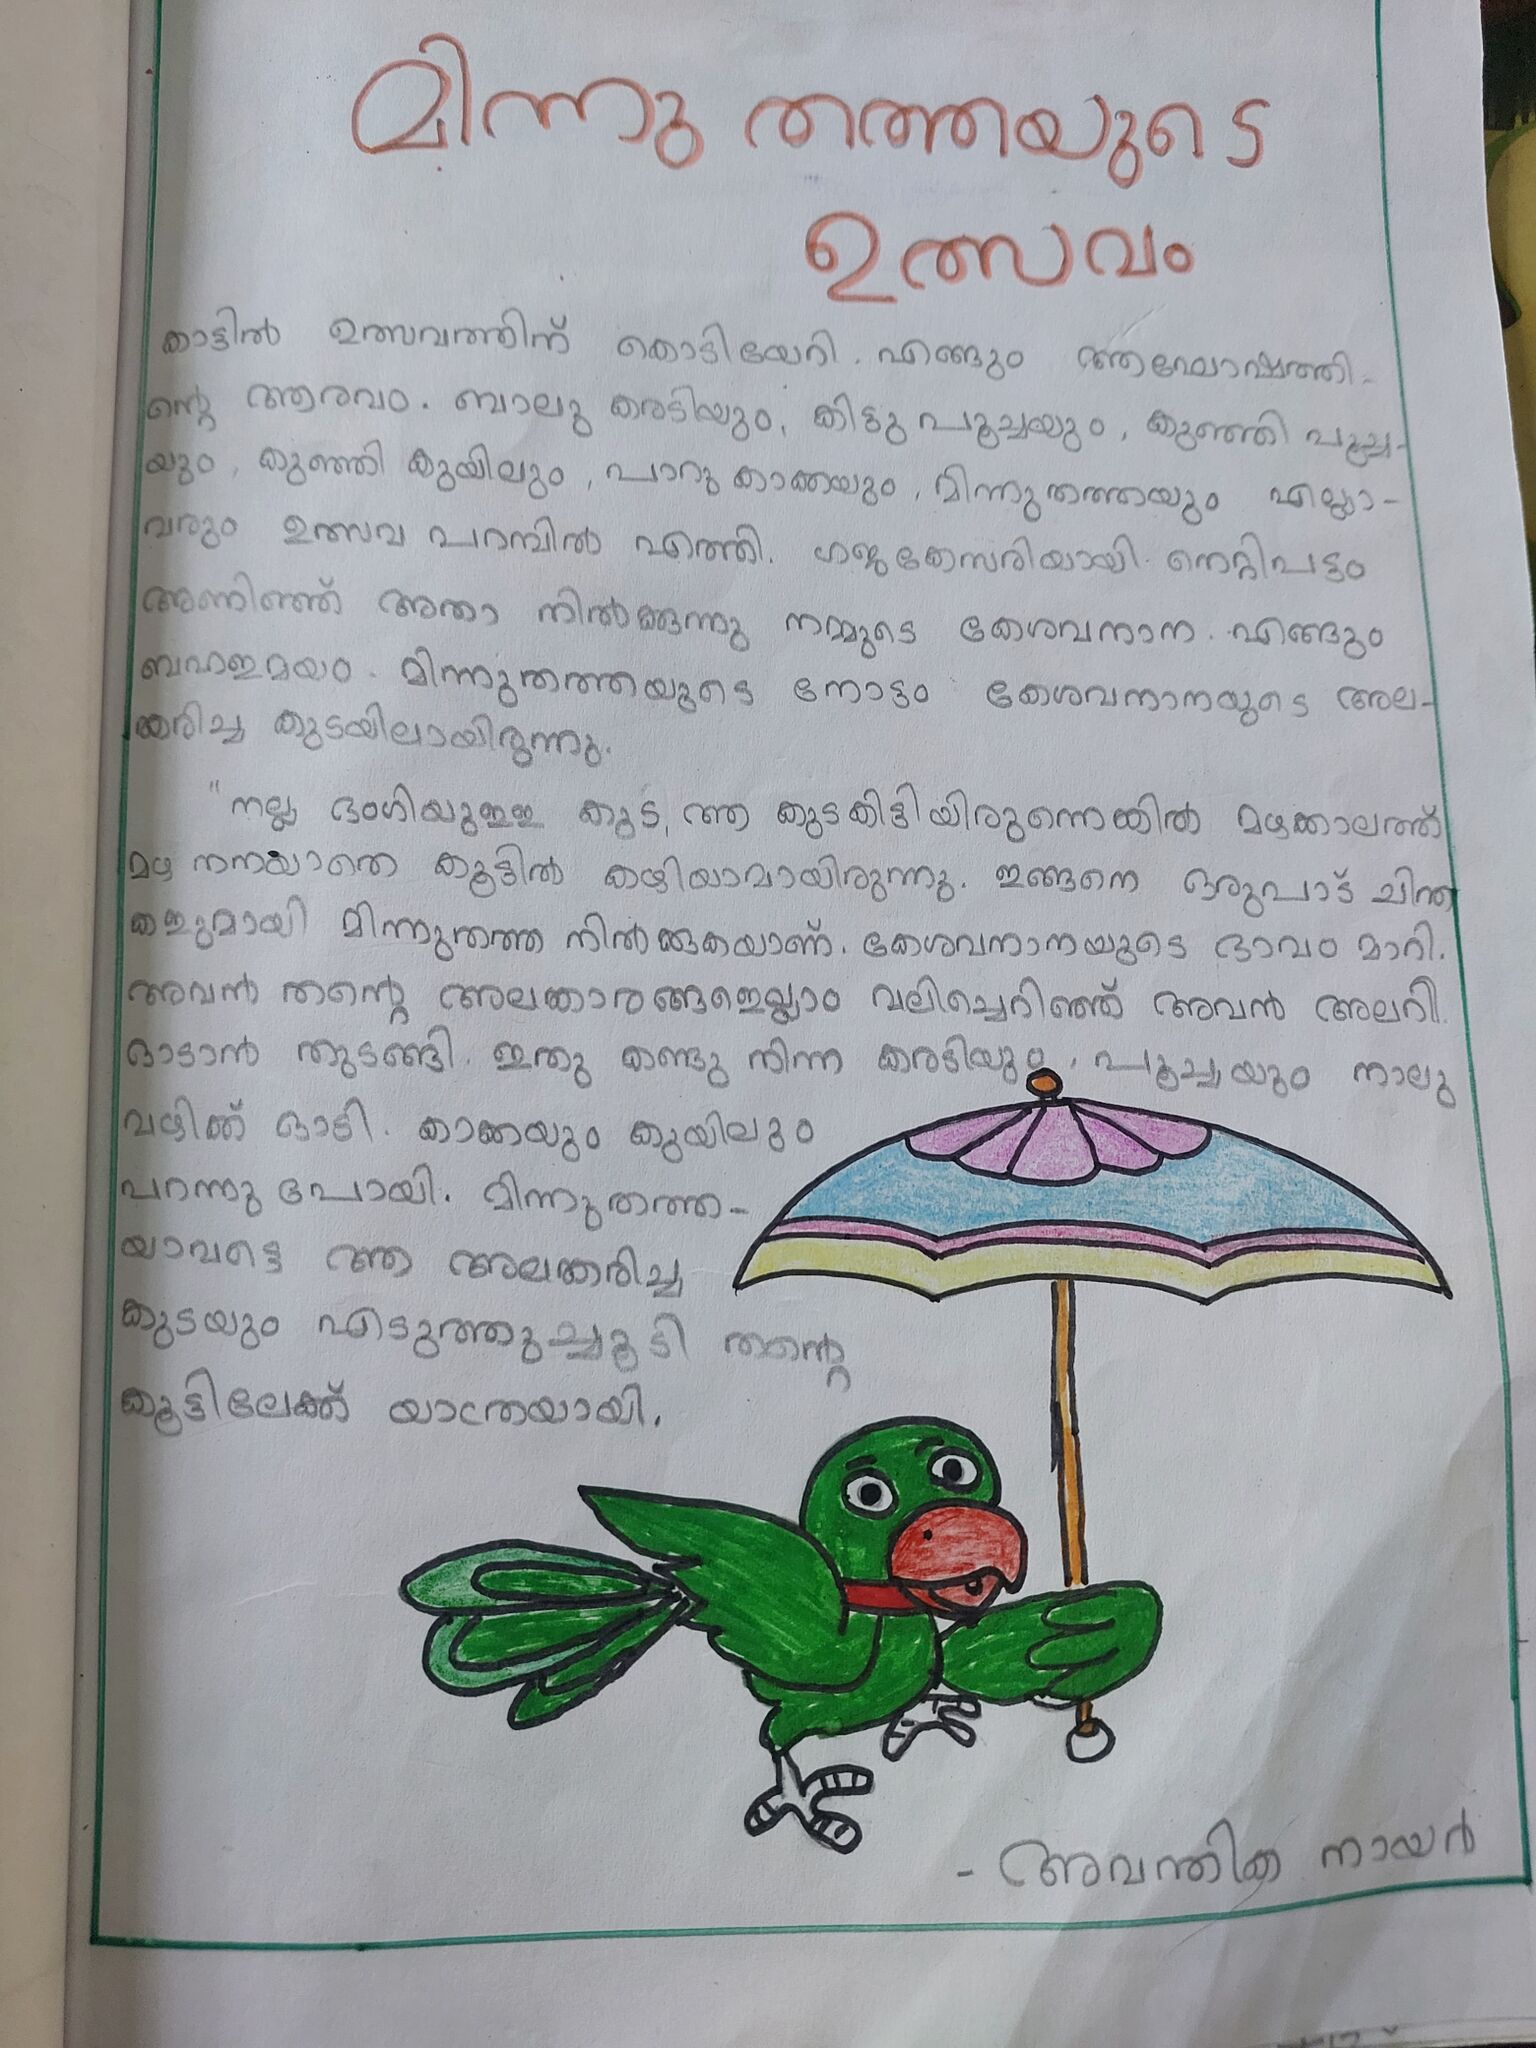 മിന്നു തത്തയുടെ
ഉത്സവം
കാട്ടിൽ ഉത്സവത്തിന് കൊടിയേറി. എങ്ങും ആഘോഷത്തി-
ന്റെ ആരവം. ബാലു കരടിയും, കിട്ടു പൂച്ചയും, കുഞ്ഞി പൂച്ച-
യും, കുഞ്ഞി കുയിലും, പാറു കാക്കയും, മിന്നുതത്തയും എല്ലാ-
വരും ഉത്സവ പറമ്പിൽ എത്തി. ഗജകേസരിയായി നെറ്റിപട്ടം
അണിഞ്ഞ് അതാ നിൽക്കുന്നു നമ്മുടെ കേശവനാന. എങ്ങും
ബഹളമയം. മിന്നുതത്തയുടെ നോട്ടം കേശവനാനയുടെ അല-
ങ്കരിച്ച കുടയിലായിരുന്നു.
"നല്ല ഭംഗിയുള്ള കുട, ആ കുടകിട്ടിയിരുന്നെങ്കിൽ മഴക്കാലത്ത്
മഴ നനയാതെ കൂട്ടിൽ കഴിയാമായിരുന്നു. ഇങ്ങനെ ഒരുപാട് ചിന്ത
കളുമായി മിന്നുതത്ത നിൽക്കുകയാണ്. കേശവനാനയുടെ ഭാവം മാറി.
അവൻ തന്റെ അലങ്കാരങ്ങളെല്ലാം വലിച്ചെറിഞ്ഞ് അവൻ അലറി
ഓടാൻ തുടങ്ങി. ഇതു കണ്ടു നിന്ന കരടിയും, പൂച്ചയും നാലു
വഴിക്ക് ഓടി. കാക്കയും കുയിലും
പറന്നു പോയി. മിന്നുതത്ത-
യാവട്ടെ ആ അലങ്കരിച്ച
കുടയും എടുത്തുച്ചൂടി തന്റെ
കൂട്ടിലേക്ക് യാത്രയായി.
- അവന്തിക നായർ